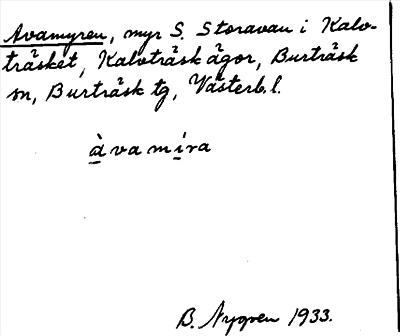 Avamyren, myr S. Storavan i Kalv-
träsket, Kalvträsk ägor, Burträsk
sn, Burträsk tg, Västerb. l.
àvamira
B. Nygren 1933.